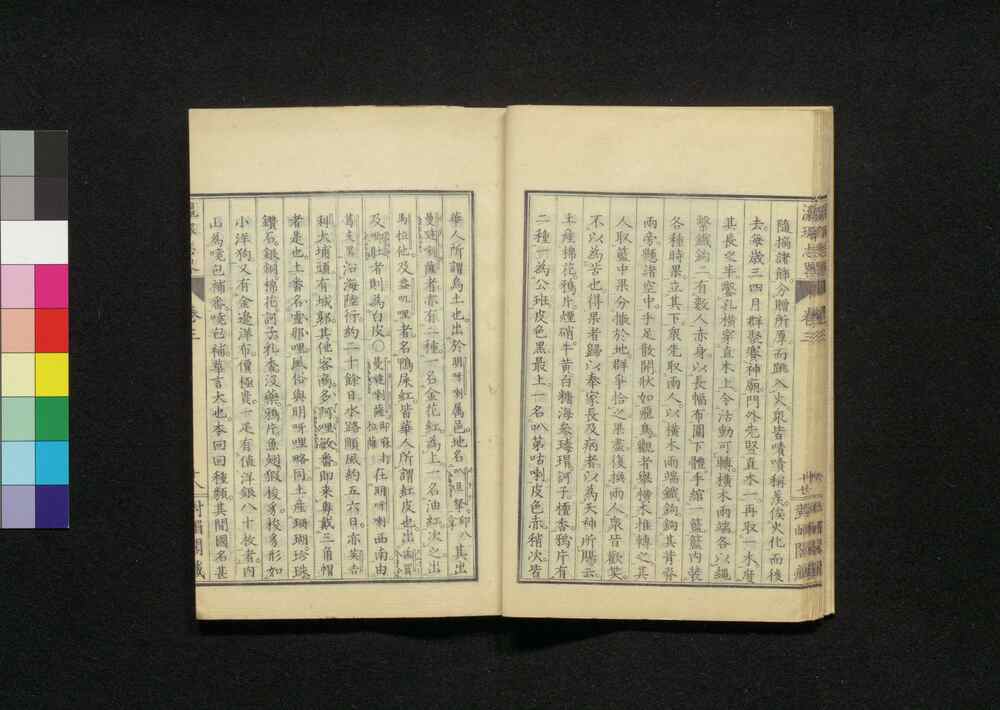 隨摘諸飾分贈所厚而跳入火衆皆嘖嘖稱羨俟火化而後
去每歲三四月群聚賽神廟門外先豎直木一再取一木度
其長之半鑿孔橫穿直木上令活動可轉橫木兩端各以繩
繫鐵鈎二有數人赤身以長幅布圍下體手綰一籃籃內裝
各種時果立其下衆先取兩人以橫木兩端鐵鈎鈎其背脊
兩旁懸諸空中手足散開狀如飛鳥觀者舉橫木推轉之其
人取籃中果分撒於地群爭拾之果盡復換兩人衆皆歡笑
不以爲苦也得果者歸以奉家長及病者以爲天神所賜云
土產棉花鴉片煙硝牛黃白糖海參瑇瑁訶子檀香鴉片有
二種一爲公班皮色黑最上一名叭第咕喇皮色赤稍次皆
華人所謂烏土也出於明呀喇屬邑地名
其出
曼噠喇薩者亦有二種一名金花紅爲上一名油紅次之出
馬拉他及盎叽哩者名鴨屎紅皆華人所謂紅皮也出
及
者則爲白皮〇曼噠喇薩
在明呀喇西南由
沿海陸行約二十餘日水路順風約五六日亦英吉
利大埔頭有城郭其他客商多阿哩敏番卽來粵戴三角帽
者是也土番名雪那哩風俗與明呀哩略同土產珊瑚珍珠
鑽石銀銅棉花訶子乳香沒藥鴉片魚翅猴棗形如
小洋狗又有金邊洋布價極貴一疋有値洋銀八十枚者內
山爲曉包補番曉包補華言大也本回回種類其間國名甚